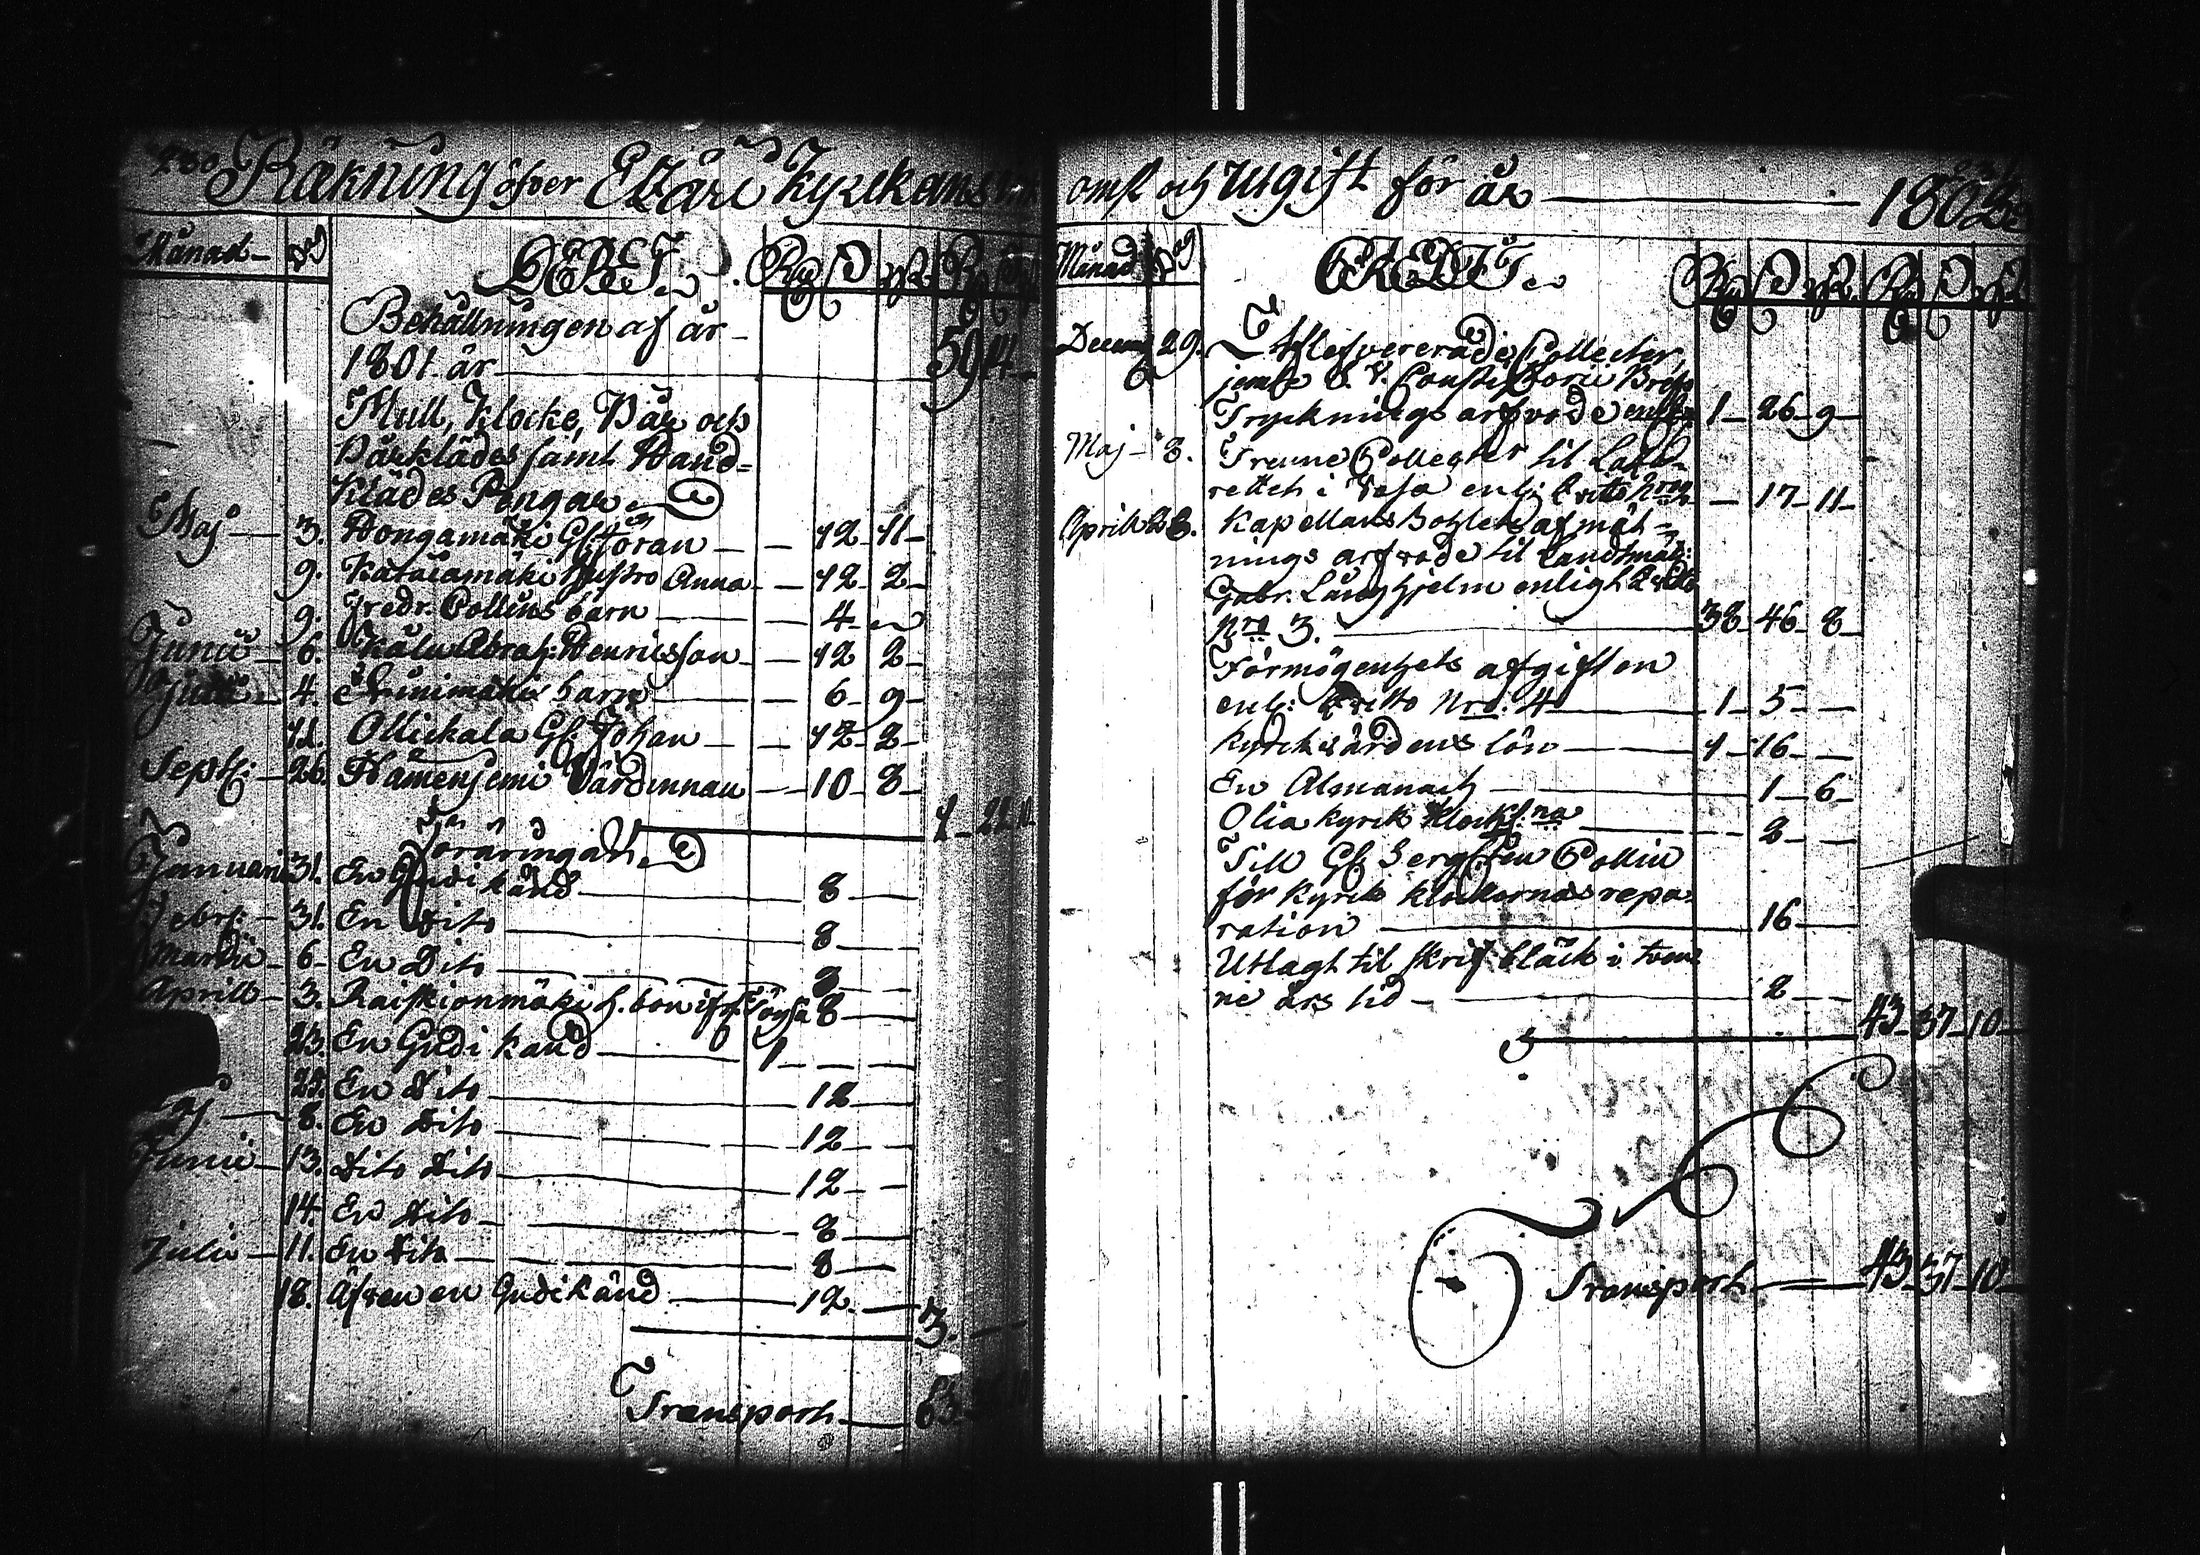 230 Räkning öfver Etzäri Kyrkans In
Månad Dag DEBET. Rd S R Rd S
Behållningen af år
1801. är 59
Mull, Klocke, Bår och
Bårklädes samt Hand=
Klädes Pengar
Maj 3. Hongamäki Gl. Jöran 12 11
9. Kataiamäki Hustro Anna 12 2
9. Fredr. Collins barn 4
Junii 6. Källn Abrah: Henricsson 12 2
4. barn 6 9
12. Ollickala Gl. Johan 12 2
Sept: 26. Hämenjemi Värdinnan 10 8
1 22
Föräringar
Januari 31. En Gudi känd 8
Febr: 31. En Dito 8
Martii 6. En Dito 8
Aprill 3. Raiskionmäki 8
23. En Gudi känd 1
25. En Dito 12
8. En Dito 12
Junii 13. Dito Dito 12
14. En Dito 8
Julii 11. En Dito 8
18. Äfven en Gudi känd 12
3.
Transport 63
omst och Utgift för år 1802
Månad Dag CREDIT. Rd S R Rd S R
Decemb 29. Aflefvererade Collecter,
jemte V. V. Consistorii Bref
Trycknings arfvode 1 26 9
Maj 8. Trenne Collecter til Laza-
rettet i Vasa enl: Qvitto Nron 17 11
Aprill Kapellans Bohlets afmät-
nings arfvode til Landtmät:
Gabr. Långhjelm enligt Qvitto
Nro 3. 38 46 8
Förmögenhets afgiften
enl: Qvitto Nro. 4 1 5
Kyrckvärdens lön 1 16
En Almanach 1 6
Olia kyrk klock:na 2
Till Gl. Sergeten Collin
för Kyrck klockornas repa=
ration 16
Utlagt til skrif bläck i tven
ne års tid 2
43 37 10
Transport 43 37 10